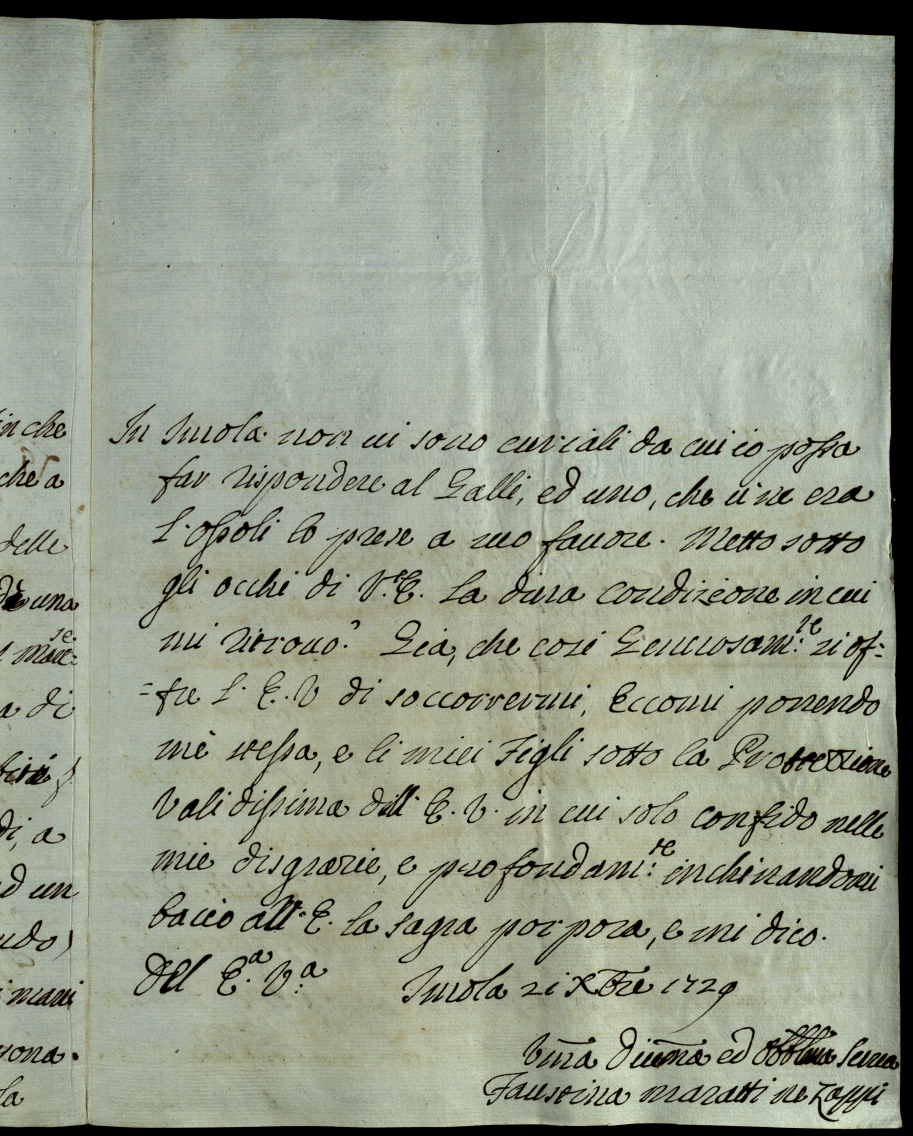 in che
che a
delle
una
di
di, a
ed un
mani
In Imola non vi sono curiali da cui io possa
far rispondere al Galli, ed uno, che vi ne era
l'Opoli lo prese a suo favore. Metto sotto
gli occhi di V.E. la dura condizione in cui
mi ritrovo. Già, che così Generosam:te si of=
=fre l'E.V di soccorrermi, Eccomi ponendo
mè stessa, e li miei Figli sotto la Protezzione
Validissima dell'E.V. in cui solo confido nelle
mie disgrazie, e profondam:te inchinandomi
bacio all'E. la sagra porpora, e mi dico.
Dell E.a V.a Imola 21 Xbre 1729
Vma Divma ed Obblma Serva
Faustina Maratti ne Zappi